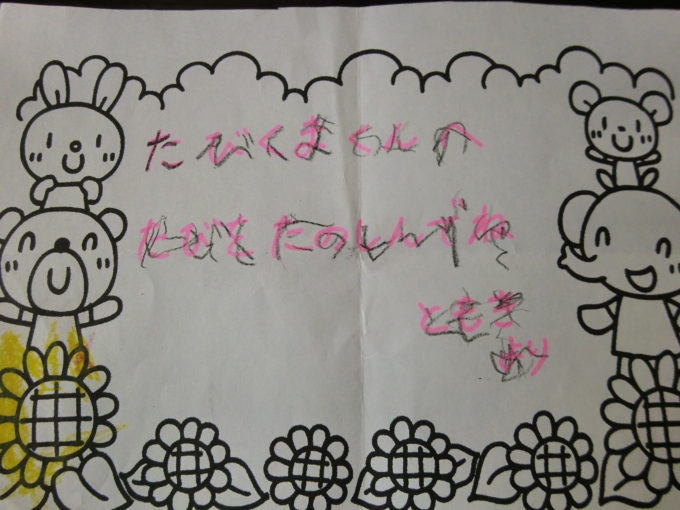 たびくまくんへ
たびをたのしんでね
ともき
より